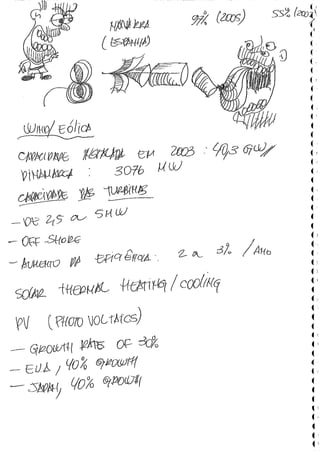 NAVARRA 97% (2005) 55% (2003
(ESPANHA)
WIND/EÓLICA
CAPACIDADE INSTALADA EM 2003: 40,3 GW//
DINAMARCA : 3076 MW
CAPACIDADE DAS TURBINAS
– DE 2,5 a 5MW
– OFF SHORE
– AUMENTO DA EFICIÊNCIA: 2 a 3% / ANO
SOLAR THERMAL HEATING/COOLING
PV (PHOTOVOLTAICS)
– GROWTH RATES OF 30%
– EUA, 40% GROWTH
– JAPAN, 40% GROWTH